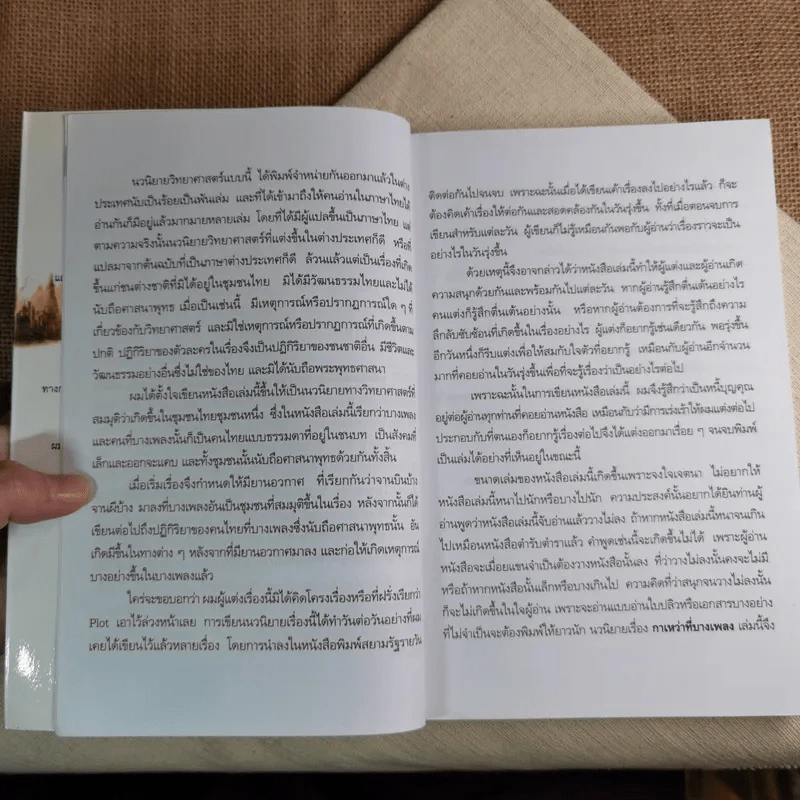 แต
ทางก
ผม
นวนิยายวิทยาศาสตร์แบบนี้ ได้พิมพ์จำหน่ายกันออกมาแล้วในต่าง
ประเทศนับเป็นร้อยเป็นพันเล่ม และที่ได้เข้ามาถึงให้คนอ่านในภาษาไทยได้
อ่านกันก็มีอยู่แล้วมากมายหลายเล่ม โดยที่ได้มีผู้แปลขึ้นเป็นภาษาไทย แต่
ตามความจริงนั้นนวนิยายวิทยาศาสตร์ที่แต่งขึ้นในต่างประเทศก็ดี หรือที่
แปลมาจากต้นฉบับที่เป็นภาษาต่างประเทศก็ดี ล้วนแล้วแต่เป็นเรื่องที่เกิด
ขึ้นแก่ชนต่างชาติที่มิได้อยู่ในชุมชนไทย มิได้มีวัฒนธรรมไทยและไม่ได้
นับถือศาสนาพุทธ เมื่อเป็นเช่นนี้ มีเหตุการณ์หรือปรากฏการณ์ใด ๆ ที่
เกี่ยวข้องกับวิทยาศาสตร์ และมิใช่เหตุการณ์หรือปรากฏการณ์ที่เกิดขึ้นตาม
ปกติ ปฏิกิริยาของตัวละครในเรื่องจึงเป็นปฏิกิริยาของชนชาติอื่น มีชีวิตและ
วัฒนธรรมอย่างอื่นซึ่งไม่ใช่ของไทย และมิได้นับถือพระพุทธศาสนา
ผมได้ตั้งใจเขียนหนังสือเล่มนี้ขึ้นให้เป็นนวนิยายทางวิทยาศาสตร์ที่
สมมุติว่าเกิดขึ้นในชุมชนไทยชุมชนหนึ่ง ซึ่งในหนังสือเล่มนี้เรียกว่าบางเพลง
และคนที่บางเพลงนั้นก็เป็นคนไทยแบบธรรมดาที่อยู่ในชนบท เป็นสังคมที่
เล็กและออกจะแคบ และทั้งชุมชนนั้นนับถือศาสนาพุทธด้วยกันทั้งสิ้น
เมื่อเริ่มเรื่องจึงกำหนดให้มียานอวกาศ ที่เรียกกันว่าจานบินบ้าง
จานผีบ้าง มาลงที่บางเพลงอันเป็นชุมชนที่สมมุติขึ้นในเรื่อง หลังจากนั้นก็ได้
เขียนต่อไปถึงปฏิกิริยาของคนไทยที่บางเพลงซึ่งนับถือศาสนาพุทธนั้น อัน
เกิดมีขึ้นในทางต่าง ๆ หลังจากที่มียานอวกาศมาลง และก่อให้เกิดเหตุการณ์
บางอย่างขึ้นในบางเพลงแล้ว
ใคร่จะขอบอกว่า ผมผู้แต่งเรื่องนี้มิได้คิดโครงเรื่องหรือที่ฝรั่งเรียกว่า
Plot เอาไว้ล่วงหน้าเลย การเขียนนวนิยายเรื่องนี้ได้ทำวันต่อวันอย่างที่ผม
เคยได้เขียนไว้แล้วหลายเรื่อง โดยการนำลงในหนังสือพิมพ์สยามรัฐรายวัน
ติดต่อกันไปจนจบ เพราะฉะนั้นเมื่อได้เขียนเค้าเรื่องลงไปอย่างไรแล้ว ก็จะ
ต้องคิดเค้าเรื่องให้ต่อกันและสอดคล้องกันในวันรุ่งขึ้น ทั้งที่เมื่อตอนจบการ
เขียนสำหรับแต่ละวัน ผู้เขียนก็ไม่รู้เหมือนกันพอกับผู้อ่านว่าเรื่องราวจะเป็น
อย่างไรในวันรุ่งขึ้น
ด้วยเหตุนี้จึงอาจกล่าวได้ว่าหนังสือเล่มนี้ทำให้ผู้แต่งและผู้อ่านเกิด
ความสนุกด้วยกันและพร้อมกันไปแต่ละวัน หากผู้อ่านรู้สึกตื่นเต้นอย่างไร
คนแต่งก็รู้สึกตื่นเต้นอย่างนั้น หรือหากผู้อ่านต้องการที่จะรู้สึกถึงความ
ลึกลับซับซ้อนที่เกิดขึ้นในเรื่องอย่างไร ผู้แต่งก็อยากรู้เช่นเดียวกัน พอรุ่งขึ้น
อีกวันหนึ่งก็รีบแต่งเพื่อให้สมกับใจตัวที่อยากรู้ เหมือนกับผู้อ่านอีกจำนวน
มากที่คอยอ่านในวันรุ่งขึ้นเพื่อที่จะรู้เรื่องว่าเป็นอย่างไรต่อไป
เพราะฉะนั้นในการเขียนหนังสือเล่มนี้ ผมจึงรู้สึกว่าเป็นหนี้บุญคุณ
อยู่ต่อผู้อ่านทุกท่านที่คอยอ่านหนังสือ เหมือนกับว่ามีการเร่งเร้าให้ผมแต่งต่อไป
ประกอบกับที่ตนเองก็อยากรู้เรื่องต่อไปจึงได้แต่งออกมาเรื่อย ๆ จนจบพิมพ์
เป็นเล่มได้อย่างที่เห็นอยู่ในขณะนี้
ขนาดเล่มของหนังสือเล่มนี้เกิดขึ้นเพราะจงใจเจตนา ไม่อยากให้
หนังสือเล่มนี้หนาไปนักหรือบางไปนัก ความประสงค์นั้นอยากได้ยินท่านผู้
อ่านพูดว่าหนังสือเล่มนี้จับอ่านแล้ววางไม่ลง ถ้าหากหนังสือเล่มนี้หนาจนเกิน
ไปเหมือนหนังสือตำรับตำราแล้ว คำพูดเช่นนี้จะเกิดขึ้นไม่ได้ เพราะผู้อ่าน
หนังสือจะเมื่อยแขนจำเป็นต้องวางหนังสือนั้นลง ที่ว่าวางไม่ลงนั้นคงจะไม่มี
หรือถ้าหากหนังสือนั้นเล็กหรือบางเกินไป ความคิดที่ว่าสนุกจนวางไม่ลงนั้น
ก็จะไม่เกิดขึ้นในใจผู้อ่าน เพราะจะอ่านแบบอ่านใบปลิวหรือเอกสารบางอย่าง
ที่ไม่จำเป็นจะต้องพิมพ์ให้ยาวนัก นวนิยายเรื่อง กาเหว่าที่บางเพลง เล่มนี้จึง